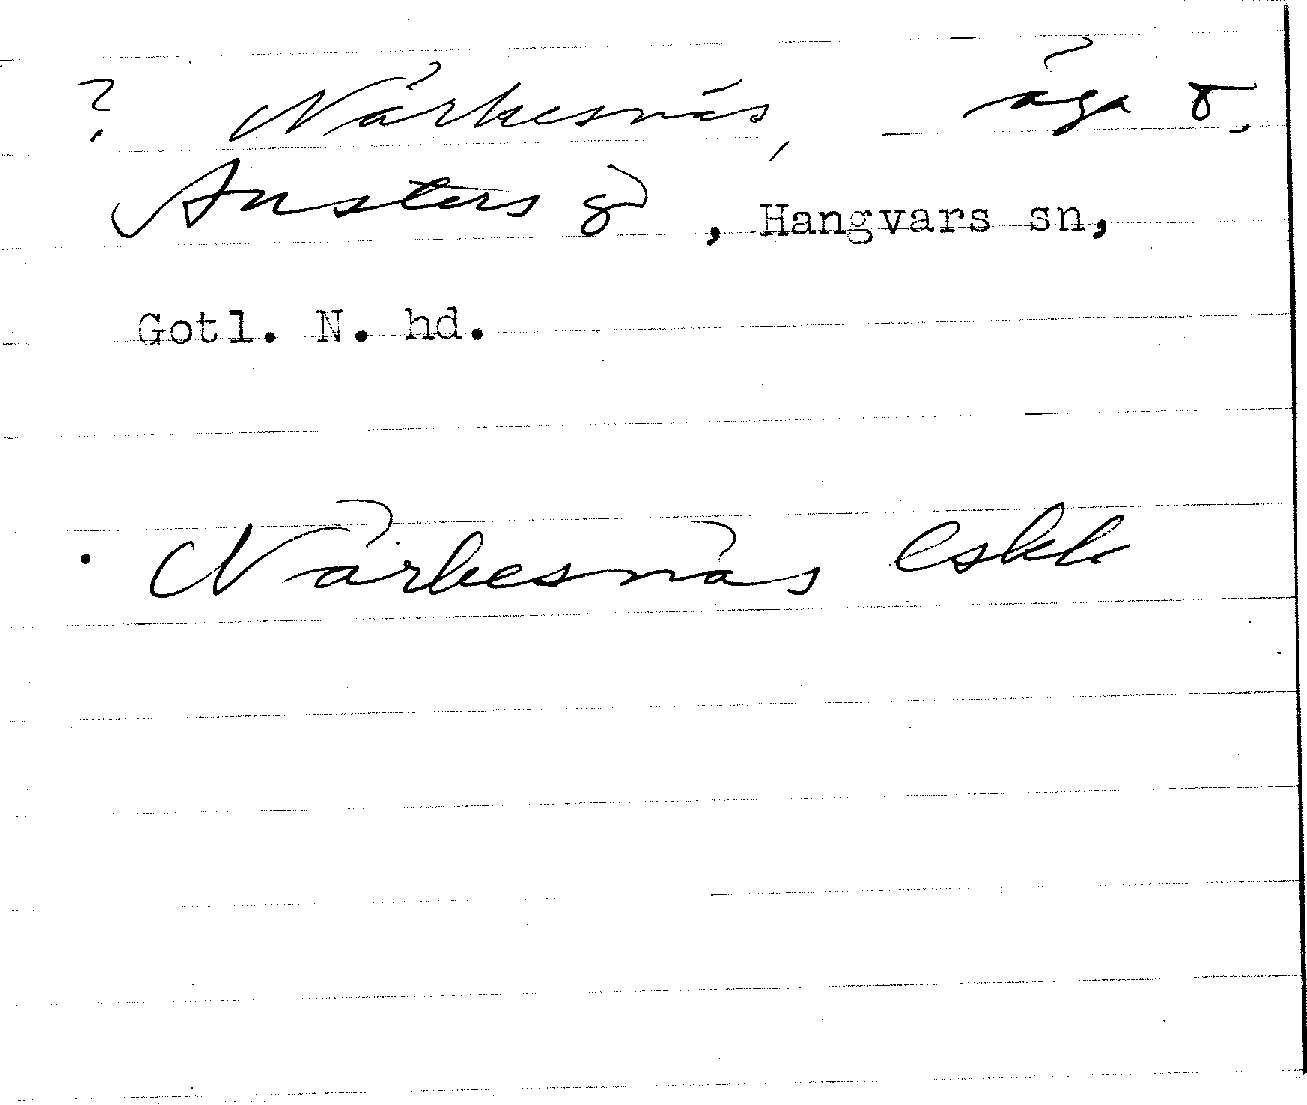 ? Närkesnäs, äga å,
Ansters gd, Hangvars sn,
Gotl. N. hd.
Närkesnäs eskk